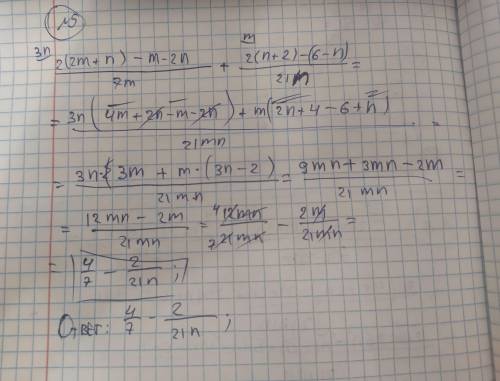 №5
3n m
(2(2m+n) - m - 2n)/(7m) + (2(n+2) - (6-n))/(21n) =
= (3n(4m + 2n - m - 2n) + m(2n + 4 - 6 + n))/(21mn) =
= (3n · 3m + m · (3n - 2))/(21mn) = (9mn + 3mn - 2m)/(21mn) =
= (12mn - 2m)/(21mn) = (4 12mn)/(7 21mn) - (2m)/(21mn) =
= 4/7 - 2/(21n) ;
Ответ: 4/7 - 2/(21n) ;